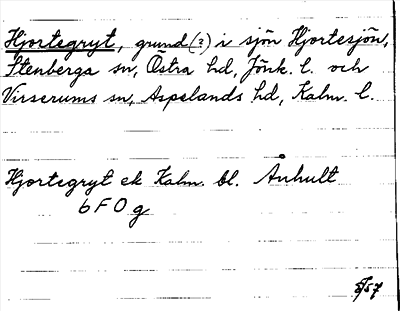 Hjortegryt, grund(?) i sjön Hjortesjön,
Stenberga sn, Östra hd, Jönk. l. och
Virserums sn, Aspelands hd, Kalm. l.
Hjortegryt ek Kalm. bl. Århult
6 F O g